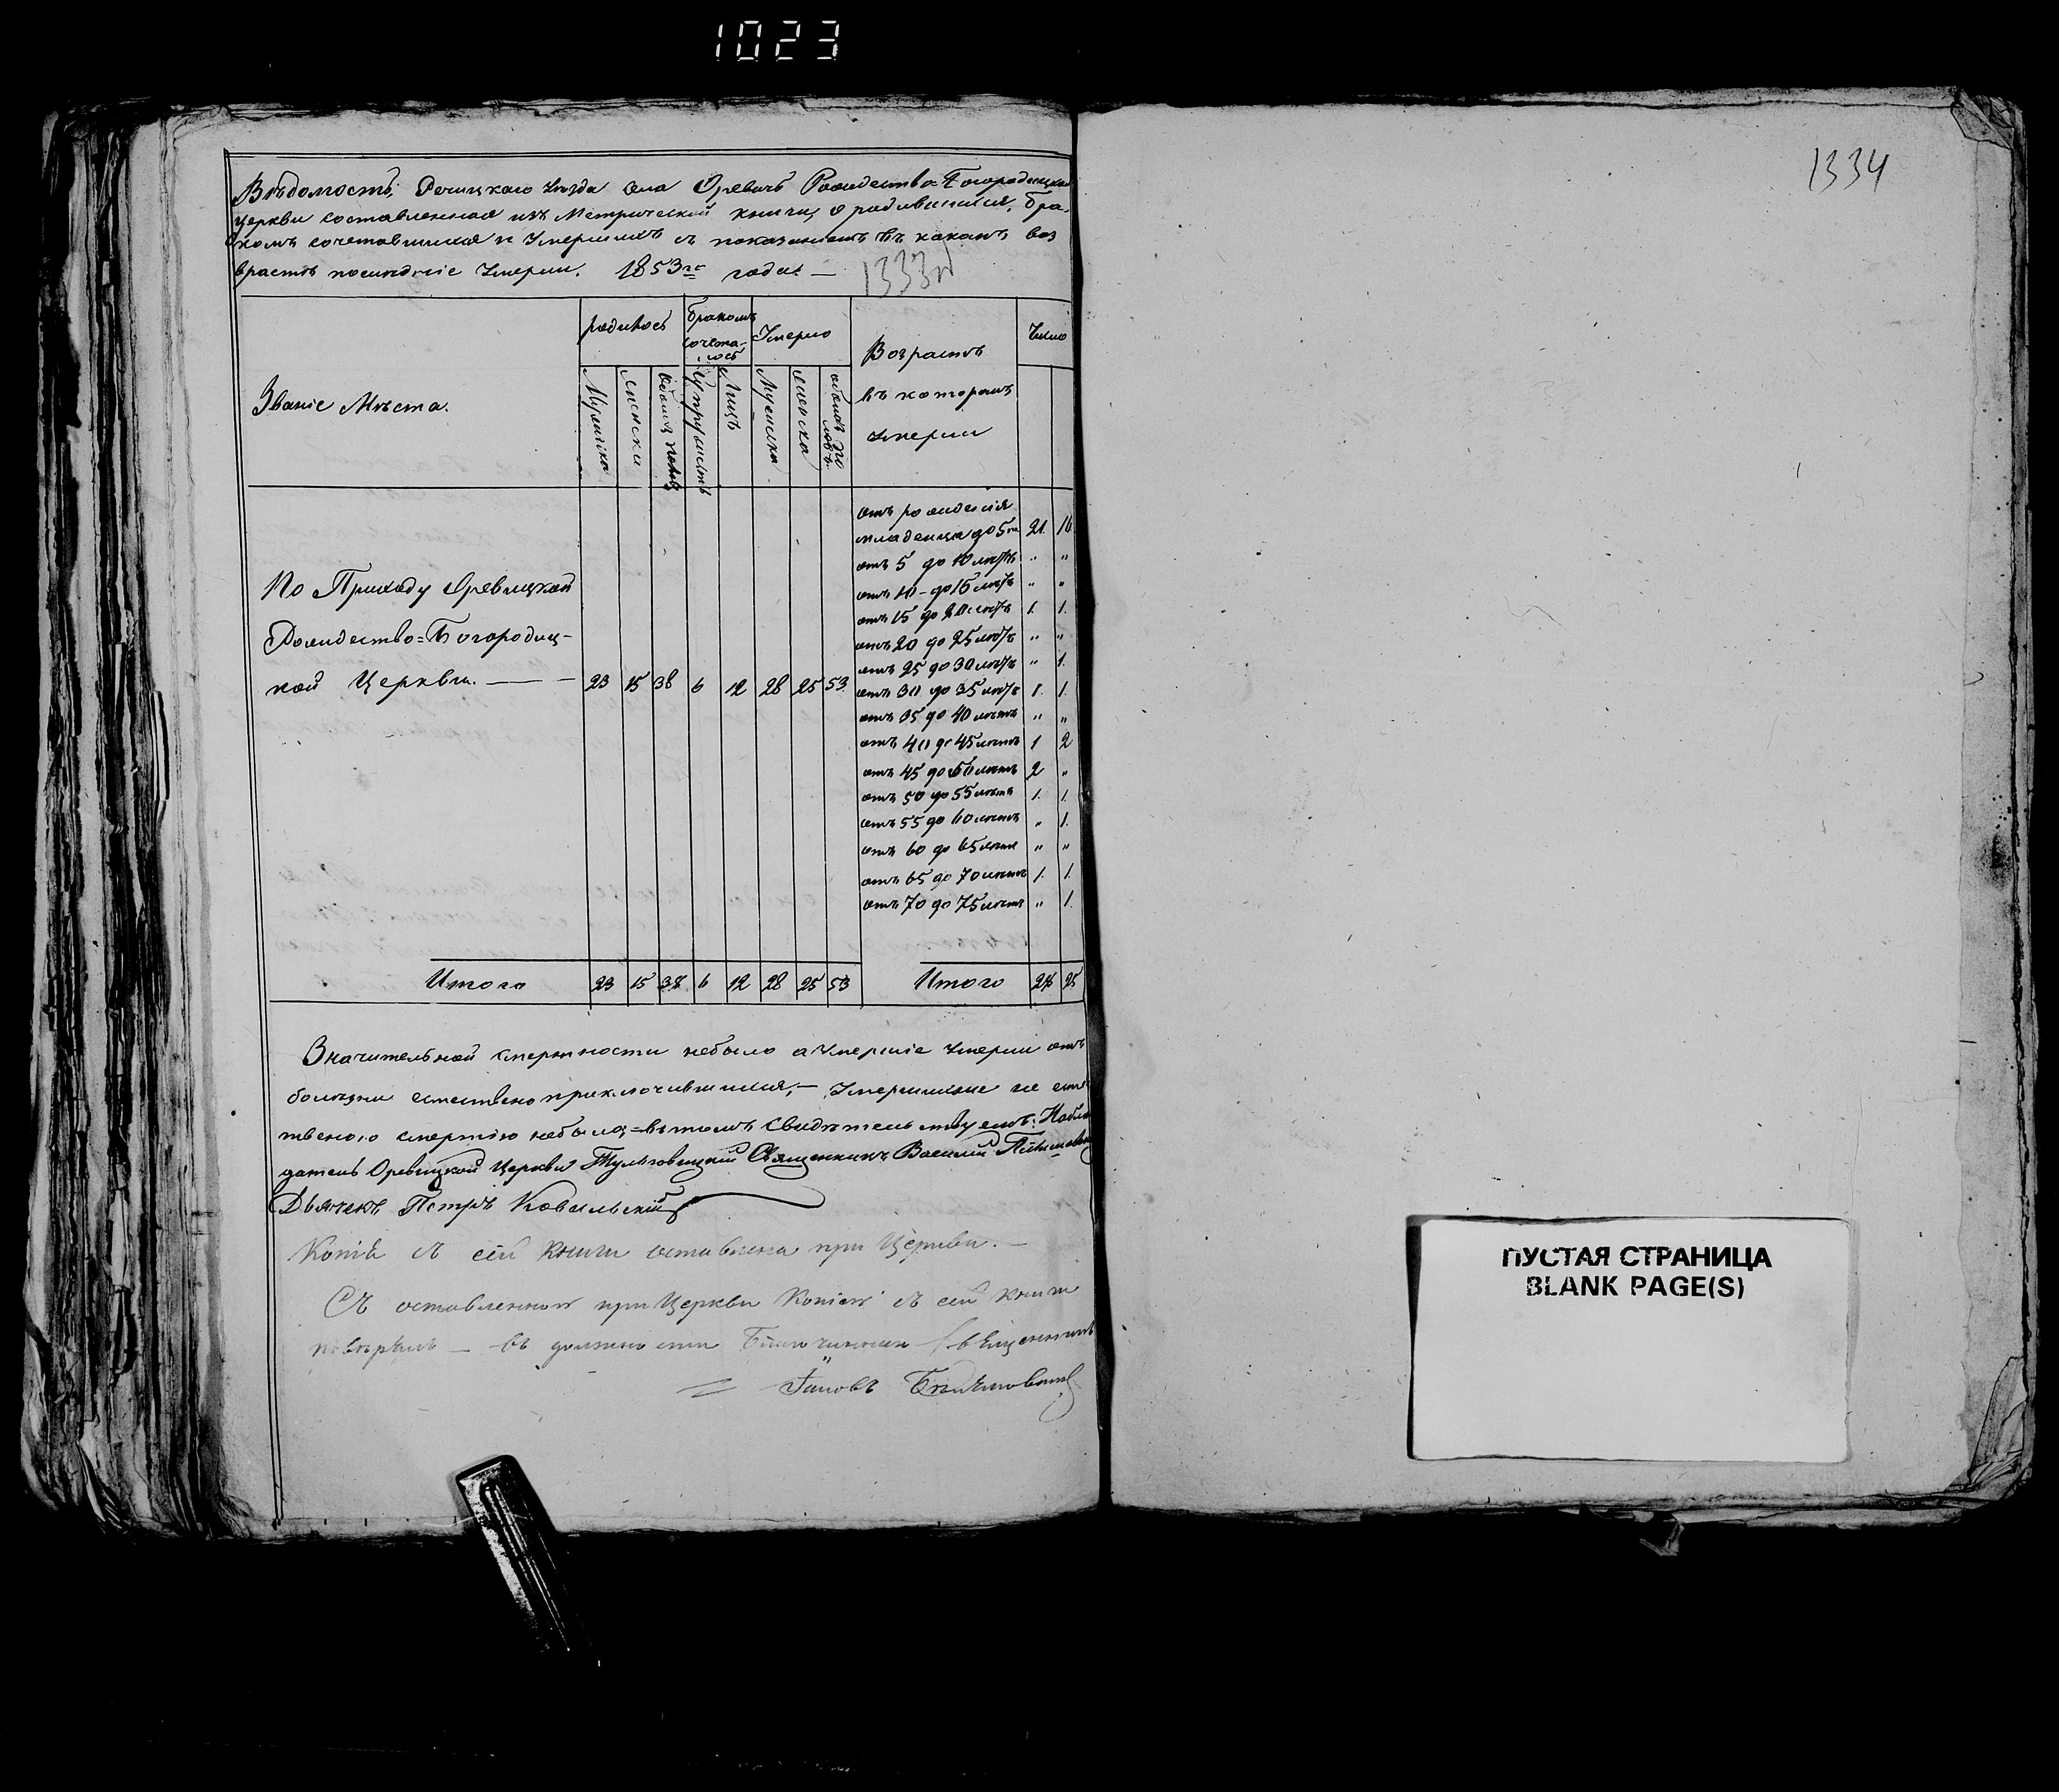 1023
1334
Вѣдомость, Речицкаго Уезда Села Оревичъ Рождество=Богородицкой
Церкви составленная изъ Метрической книги, о родившихся, бра-
комъ сочетавшихся и Умершихъ съ показаніемъ въ какомъ воз
врастѣ послѣдніе Умерли. 1853го года. —
1333
Званіе Мѣста.
родилось
бракомъ сочета-лось
Умерло
Возрастъ
въ которомъ
Умерли
Число
Мужска
Женски
Обоихъ половъ
Супружествъ
Лицъ
Мужска
Женска
обоихъ половъ
отъ рожденія
младенца до 5ти 21. 16
отъ 5 до 10 лѣтъ " "
отъ 10 - до 15 лѣтъ " "
отъ 15 до 20 лѣтъ 1. 1.
отъ 20 до 25 лѣтъ " "
отъ 25 до 30 лѣтъ " 1.
По Приходу Оревицкой
Рождество=Богородиц-
кой Церкви. — — 23 15 38 6 12 28 25 53.
отъ 30 до 35 лѣтъ 1. 1.
отъ 35 до 40 лѣтъ " "
отъ 40 до 45 лѣтъ 1 2
отъ 45 до 50 лѣтъ 2 "
отъ 50 до 55 лѣтъ 1. 1.
отъ 55 до 60 лѣтъ " 1.
отъ 60 до 65 лѣтъ " "
отъ 65 до 70 лѣтъ 1. 1.
отъ 70 до 75 лѣтъ " 1.
Итого 23 15 38 6 12 28 25 53 Итого 28 25
Значительной смертности небыло а Умершіе Умерли отъ
болѣзни естествено приключившихся, — Умершихъ не есте
твеною смертію небыло, = въ томъ Свидѣтельствуемъ: Наблю
датель Оревицкой Церкви Тульговицкій Священникъ Василій
Дьячекъ Петръ Ковальскій
Копія съ сей книги оставлена при Церкви. —
Съ оставленною при Церкви Копіею съ сей книги
повѣрялъ — въ должности Благочиннаго Священникъ
Іаковъ
ПУСТАЯ СТРАНИЦА
BLANK PAGE(S)